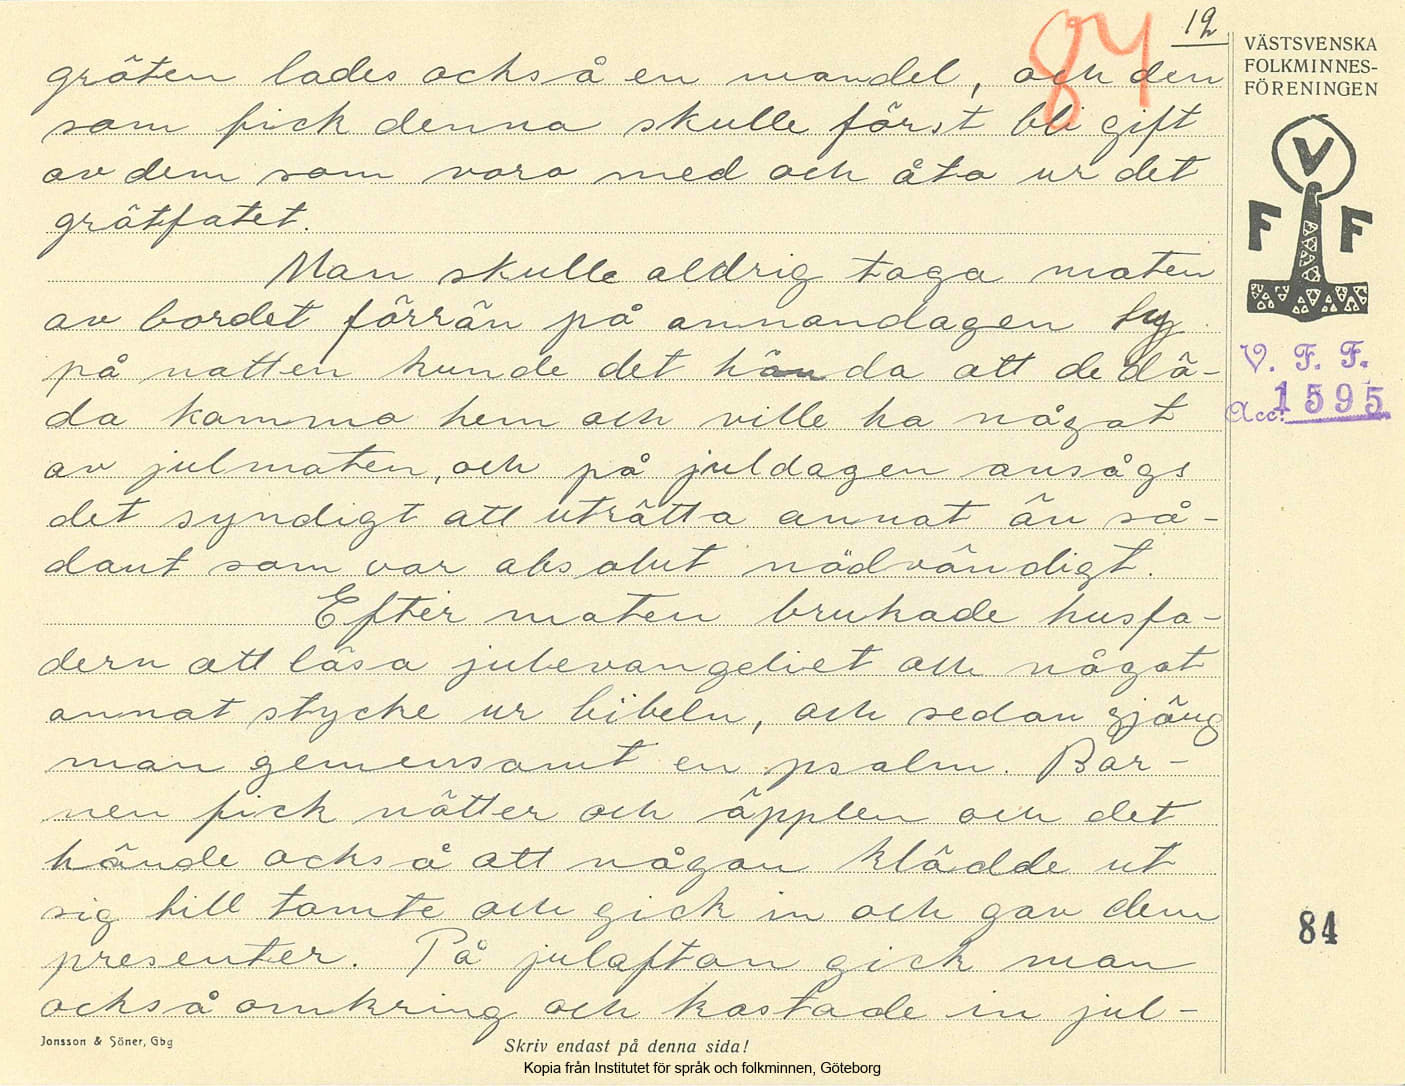 84
12
gröten lades också en mandel, och den
som fick denna skulle först bli gift
av dem som voro med och åto ur det
grötfatet.
Man skulle aldrig taga maten
av bordet förrän på annandagen ty
på natten kunde det hända att de dö-
da kommo hem och ville ha något
av julmaten, och på juldagen ansågs
det syndigt att uträtta annat än så-
dant som var absolut nödvändigt.
Efter maten brukade husfa-
dern att läsa julevangeliet och något
annat stycke ur bibeln, och sedan sjöng
man gemensamt en psalm. Bar-
nen fick nötter och äpplen och det
hände också att någon klädde ut
sig till tomte och gick in och gav dem
presenter. På julafton gick man
också omkring och kastade in jul-
VÄSTSVENSKA
FOLKMINNES-
FÖRENINGEN
V
F F
V. F. F.
Acc: 1595
84
Jonsson & Söner, Gbg
Skriv endast på denna sida!
Kopia från Institutet för språk och folkminnen, Göteborg